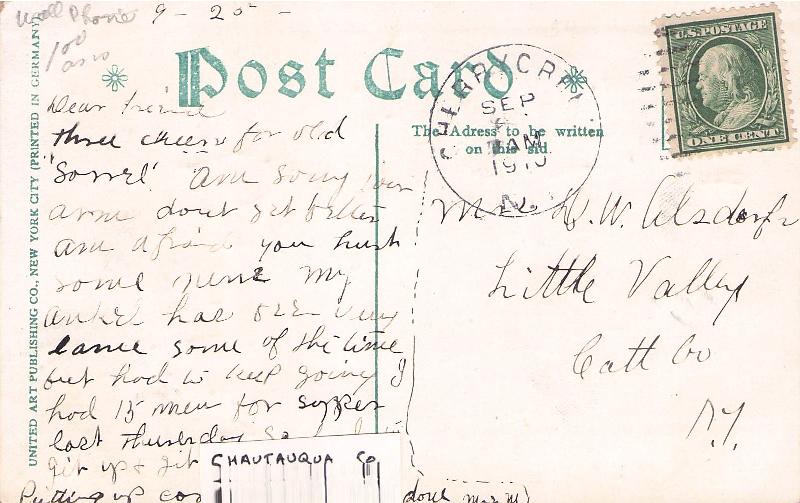 Wall Phone
9 - 20 -
100
Post Card
UNITED ART PUBLISHING CO., NEW YORK CITY (PRINTED IN GERMANY)
The Adress to be written
on this sid.
U.S. POSTAGE
ONE CENT
SEP
AM
1910
N.
Dear friend
three cheers for old
"Sorrel" am sorry your
arm dont get better
am afraid you hurt
some nerve my
ankel has ben very
lame some of the time
but had to keep going I
had 15 men for supper
last Thursday
git up & git
CHAUTAUQUA CO
Putting up
W. W.
Little Valley
Catt Co
N.Y.